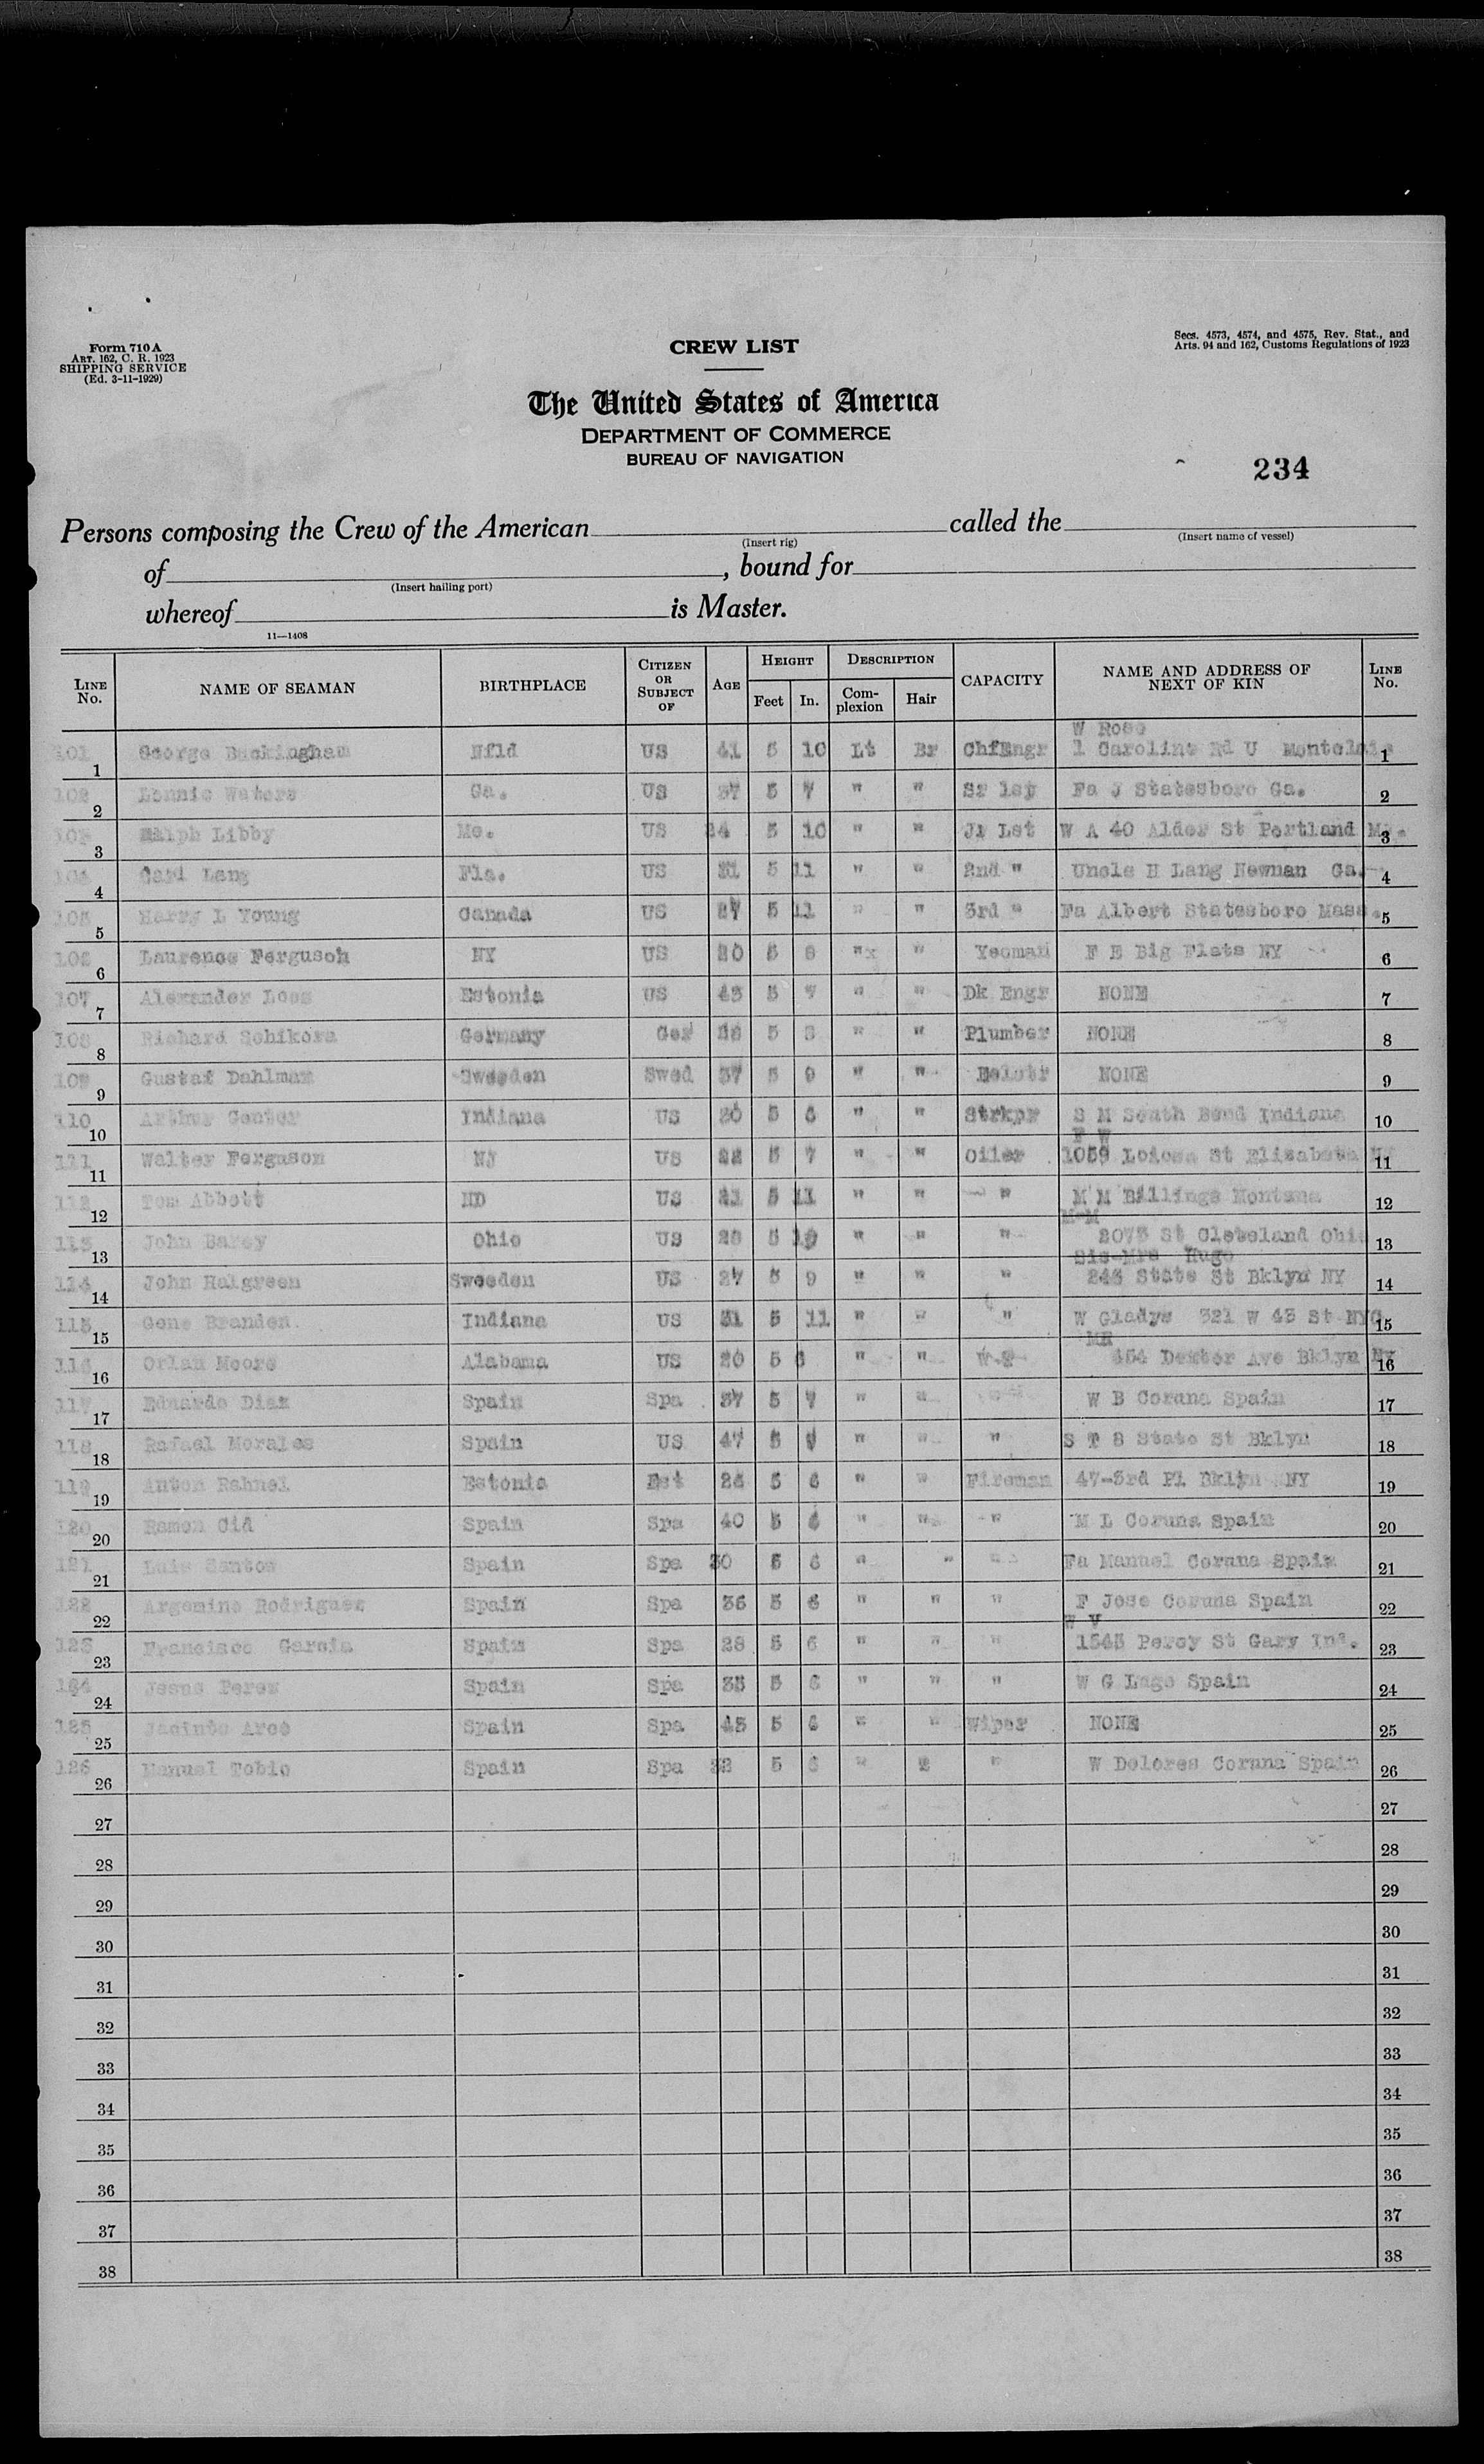 Form 710 A
ART. 162, C. R. 1923
SHIPPING SERVICE
(Ed. 3-11-1929)
Secs. 4573, 4574, and 4575, Rev. Stat., and
Arts. 94 and 162, Customs Regulations of 1923
CREW LIST
The United States of America
DEPARTMENT OF COMMERCE
BUREAU OF NAVIGATION
234
Persons composing the Crew of the American called the
(Insert rig) (Insert name of vessel)
of , bound for
(Insert hailing port)
whereof is Master.
11—1408
LINE No. NAME OF SEAMAN BIRTHPLACE CITIZEN OR SUBJECT OF AGE HEIGHT Feet In. DESCRIPTION Complexion Hair CAPACITY NAME AND ADDRESS OF NEXT OF KIN LINE No.
W Rose
101 1 George Buckingham Nfld US 41 5 10 Lt Br ChfEngr 1 Caroline Rd U 1
102 2 Lonnie Waters Ga. US 37 5 7 " " Sr 1st Fa J Statesboro Ga. 2
103 3 Ralph Libby Me. US 5 10 " " W A 40 Alder St Portland Me. 3
104 4 Carl Lang Fla. US 5 11 " " 2nd " Uncle H Lang Newnan Ga. 4
105 5 Harry L Young Canada US 27 5 11 " " 3rd " Fa Albert Statesboro Mass. 5
106 6 Laurence Ferguson NY US 20 5 " " Yeoman F E Big Flats NY 6
107 7 Alexander Loos Estonia US 43 5 7 " " Dk Engr NONE 7
108 8 Richard Germany Ger 5 " " Plumber NONE 8
109 9 Gustaf Dahlman Sweeden Swed 37 5 9 " " NONE 9
110 10 Arthur Center Indiana US 20 5 6 " " Strkpr S M South Bend Indiana 10
F W
111 11 Walter Ferguson NJ US 22 5 7 " " Oiler 1059 St 11
112 12 Tom Abbott ND US 21 5 11 " " " M M Billings Montana 12
M-M
113 13 John US 5 10 " " " 2075 St Cleveland Ohio 13
Sis-Mrs Hugo
114 14 John Halgreen Sweeden US 27 5 9 " " " State St Bklyn NY 14
115 15 Gene Branden. Indiana US 31 5 11 " " " W Gladys 321 W 43 St NYC 15
116 16 Orlan Moore Alabama US 20 5 6 " " W.T 454 Dexter Ave Bklyn NY 16
117 17 Eduardo Diaz Spain Spa 37 5 7 " " " W B Coruna Spain 17
118 18 Rafael Morales Spain US 47 5 " " " S T 8 State St Bklyn 18
119 19 Anton Estonia Est 5 6 " " Fireman 47-3rd Pl Bklyn NY 19
120 20 Ramon Cid Spain Spa 40 5 6 " " " M L Coruna Spain 20
121 21 Luis Santos Spain Spa 30 5 6 " " " Fa Manuel Coruna Spain 21
122 22 Argemino Rodriguez Spain Spa 36 5 6 " " " F Jose Coruna Spain 22
W V
123 23 Francisco Garcia Spain Spa 28 5 6 " " " 1545 Percy St Gary Ind. 23
124 24 Jesus Perez Spain Spa 35 5 6 " " " W G Lugo Spain 24
125 25 Jacinto Arce Spain Spa 45 5 6 " " Wiper NONE 25
126 26 Manuel Tobio Spain Spa 32 5 6 " " " W Dolores Coruna Spain 26
27 27
28 28
29 29
30 30
31 31
32 32
33 33
34 34
35 35
36 36
37 37
38 38